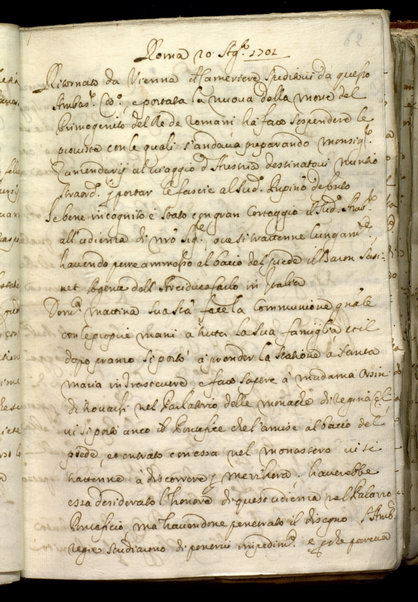 Roma 20 Agº. 1701
62
Ritornato da Vienna il Cameriere speditovi da questo
Ambas.r Ces.o, e portata la nuova della morte del
Primogenito del Re de Romani ha fatto sospendere le
provviste con le quali s'andava preparando monsig.r
al viaggio d'Austria destinatovi nunzio
straord.o p portar le fascie al sud.o Pupino defonto
Se bene incognito è stato con gran corteggio il sud.o Amb.r
all'udienza di Nro Sig.re che si trattenne lungam.te
havendo pure ammesso al bacio del piede il Baron
net dell'Arciduca fatto in
Dom.ca mattina sua Stà fece la Communione g.nale
con le proprie mani a tutta la sua famiglia et il
dopo pranzo si portò à prender la stazione à Santa
maria in Trastevere, e fece sapere à madama Orsini
di nel Parlatorio delle monache di
vi si portò anco il Pontefice che l'amise al bacio del
piede, et entrato con essa nel monastero vi si
trattenne à discorrere, merihora, haverebbe
essa desiderato l'honore di queste udienze nel Palazzo
Pontificio ma havendone penetrato il disegno l'Amb.
regie studiavano di ponervi impedim.to e già pareva